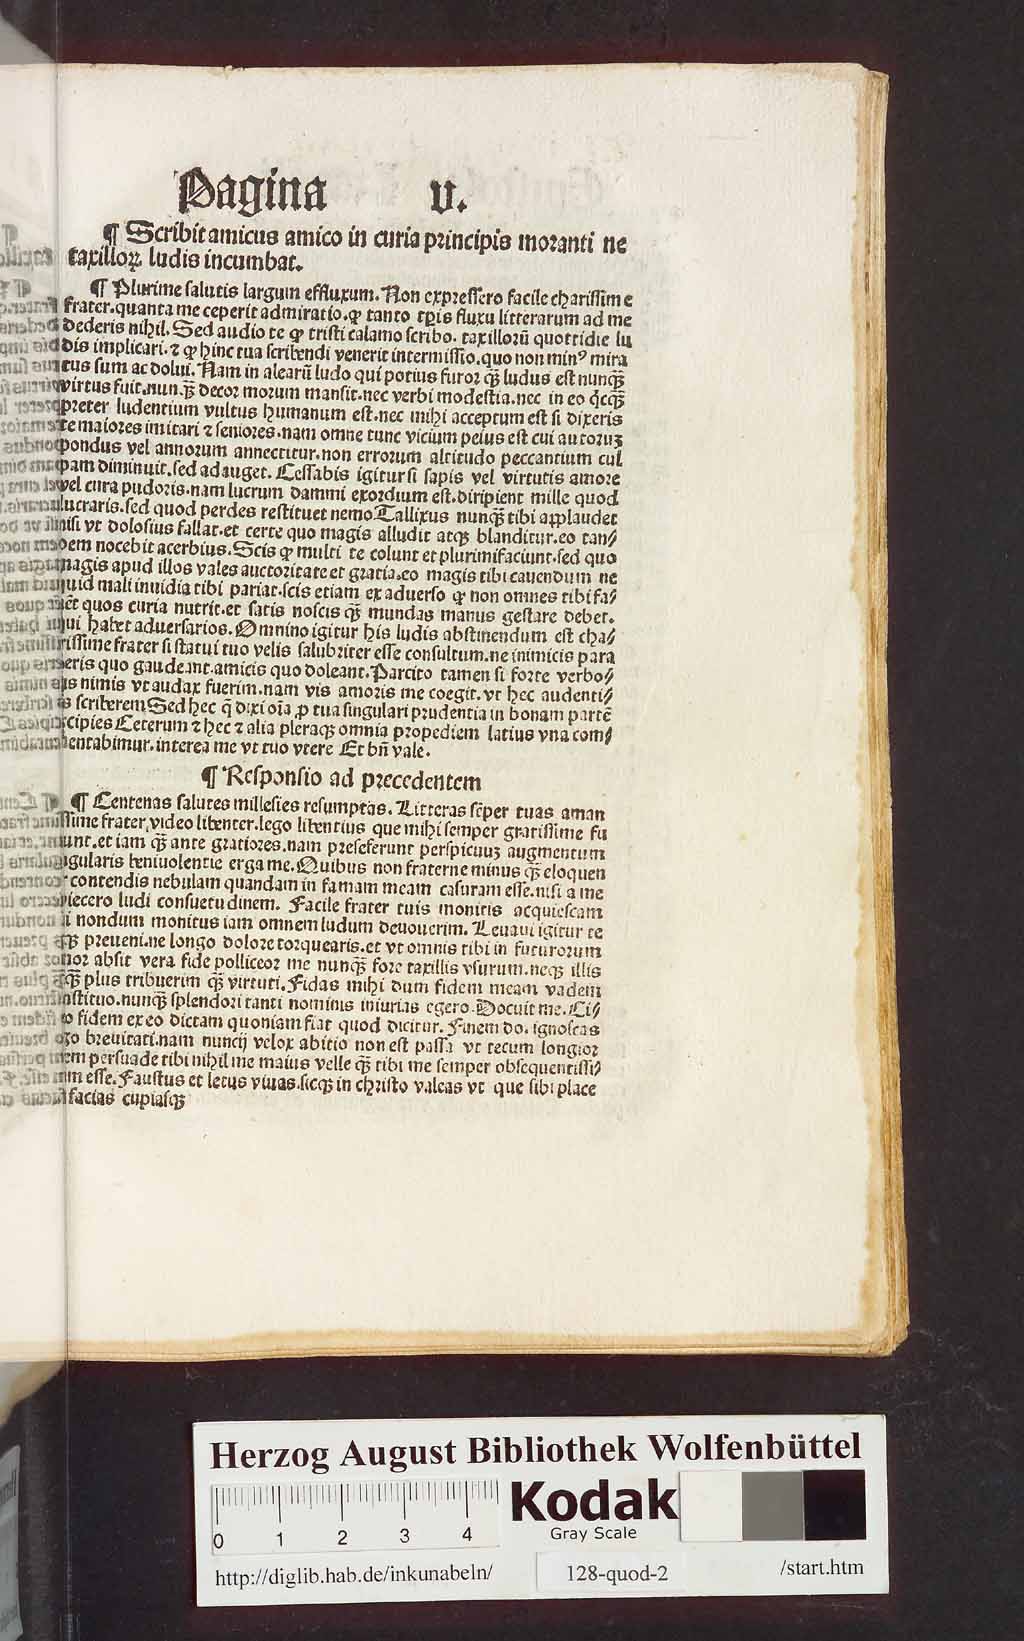 Pagina v.
¶ Scribit amicus amico in curia principis moranti ne
taxilloꝝ ludis incumbat.
¶ Plurime salutis largum effluxum. Non expressero facile charissime
frater. quanta me ceperit admiratio. ꝙ tanto tp̄is fluxu litterarum ad me
dederis nihil. Sed audio te ꝙ tristi calamo scribo. taxillorū quottidie lu
dis implicari. ⁊ ꝙ hinc tua scribendi venerit intermissio. quo non minꝰ mira
tus sum ac dolui. Nam in alearū ludo qui potius furor qꝫ̄ ludus est nunqꝫ̄
virtus fuit. nunqꝫ̄ decor morum mansit. nec verbi modestia. nec in eo q̄cqꝫ̄
preter ludentium vultus humanum est. nec mihi acceptum est si dixeris
te maiores imitari ⁊ seniores. nam omne tunc vicium peius est cui autoruꝫ
pondus vel annorum annectitur. non errorum altitudo peccantium cul
pam diminuit. sed adauget. Cessabis igitur si sapis vel virtutis amore
vel cura pudoris. nam lucrum damni exordium est. diripient mille quod
lucraris. sed quod perdes restituet nemo Tallixus nunqꝫ̄ tibi applaudet
nisi vt dolosius fallat. et certe quo magis alludit atqꝫ blanditur. eo tan⸗
dem nocebit acerbius. Scis ꝙ multi te colunt et plurimifaciunt. sed quo
magis apud illos vales auctoritate et gratia. eo magis tibi cauendum ne
quid mali inuidia tibi pariat. scis etiam ex aduerso ꝙ non omnes tibi fa⸗
uēt quos curia nutrit. et satis noscis qꝫ̄ mundas manus gestare debet.
qui habet aduersarios. Omnino igitur his ludis abstinendum est cha⸗
rissime frater si statui tuo velis salubriter esse consultum. ne inimicis para
ueris quo gaudeant. amicis quo doleant. Parcito tamen si forte verbo⸗
sus nimis vt audax fuerim. nam vis amoris me coegit. vt hec audenti⸗
us scriberem Sed hec q̄ dixi oīa ꝓ tua singulari prudentia in bonam partē
accipies Ceterum ⁊ hec ⁊ alia pleraqꝫ omnia propediem latius vna com⸗
mentabimur. interea me vt tuo vtere Et bn̄ vale.
¶ Responsio ad precedentem
¶ Centenas salutes millesies resumptas. Litteras sēper tuas aman
tissime frater video libenter. lego libentius que mihi semper gratissime fu
erunt. et iam qꝫ̄ ante gratiores. nam preseferunt perspicuuꝫ augmentum
singularis beniuolentie erga me. Quibus non fraterne minus qꝫ̄ eloquen
ter contendis nebulam quandam in famam meam casuram esse. nisi a me
abiecero ludi consuetudinem. Facile frater tuis monitis acquiescam
qui nondum monitus iam omnem ludum deuouerim. Leuaui igitur te
atqꝫ preueni. ne longo dolore torquearis. et vt omnis tibi in futurorum
timor absit vera fide polliceor me nunqꝫ̄ fore taxillis vsurum. neqꝫ illis
vnqꝫ̄ plus tribuerim qꝫ̄ virtuti. Fidas mihi dum fidem meam vadem
constituo. nunqꝫ̄ splendori tanti nominis iniurias egero. Docuit me. Ci⸗
cero fidem ex eo dictam quoniam fiat quod dicitur. Finem do. ignoscas
rogo breuitati. nam nuncij velox abitio non est passa vt tecum longior
essem persuade tibi nihil me maius velle qꝫ̄ tibi me semper obsequentissi⸗
mum esse. Faustus et letus viuas. sicqꝫ in christo valeas vt que sibi place
facias cupiasqꝫ
Herzog August Bibliothek Wolfenbüttel
0 1 2 3 4
Kodak
Gray Scale
http://diglib.hab.de/inkunabeln/ 128-quod-2 /start.htm